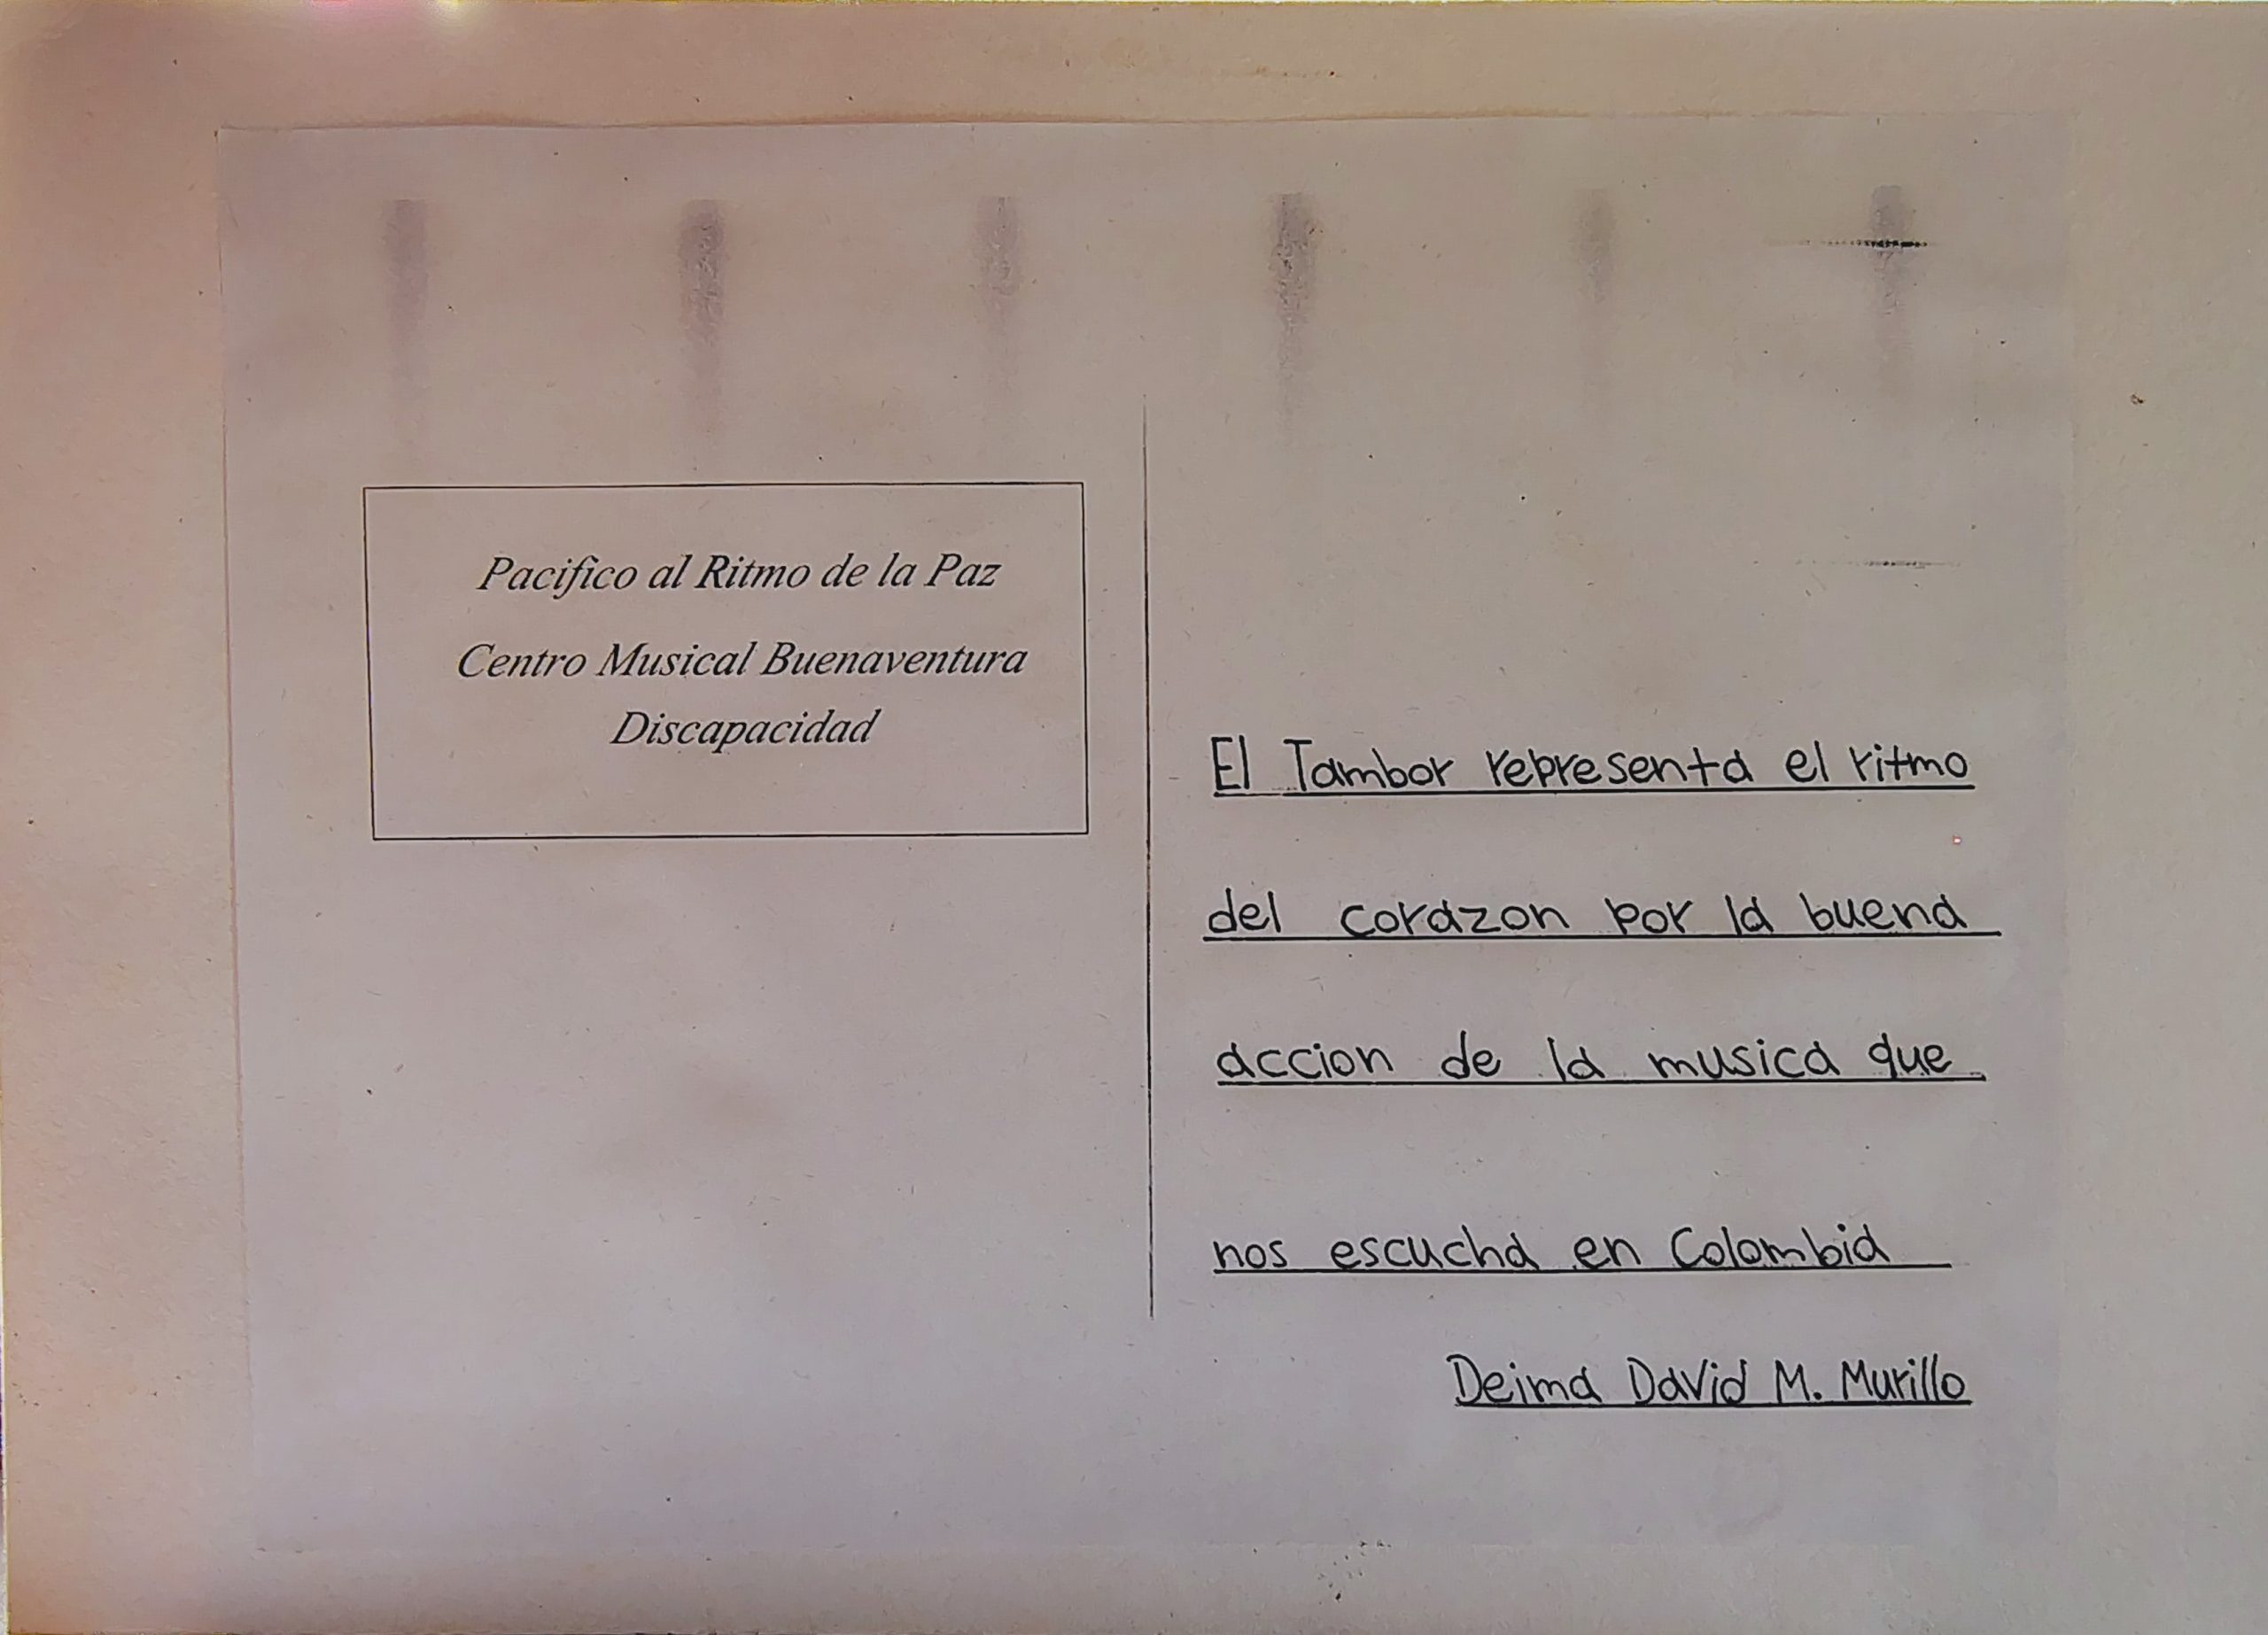 Pacifico al Ritmo de la Paz
Centro Musical Buenaventura
Discapacidad
El Tambor representa el ritmo
del corazon por la buena
accion de la musica que
nos escucha en Colombia
Deima David M. Murillo